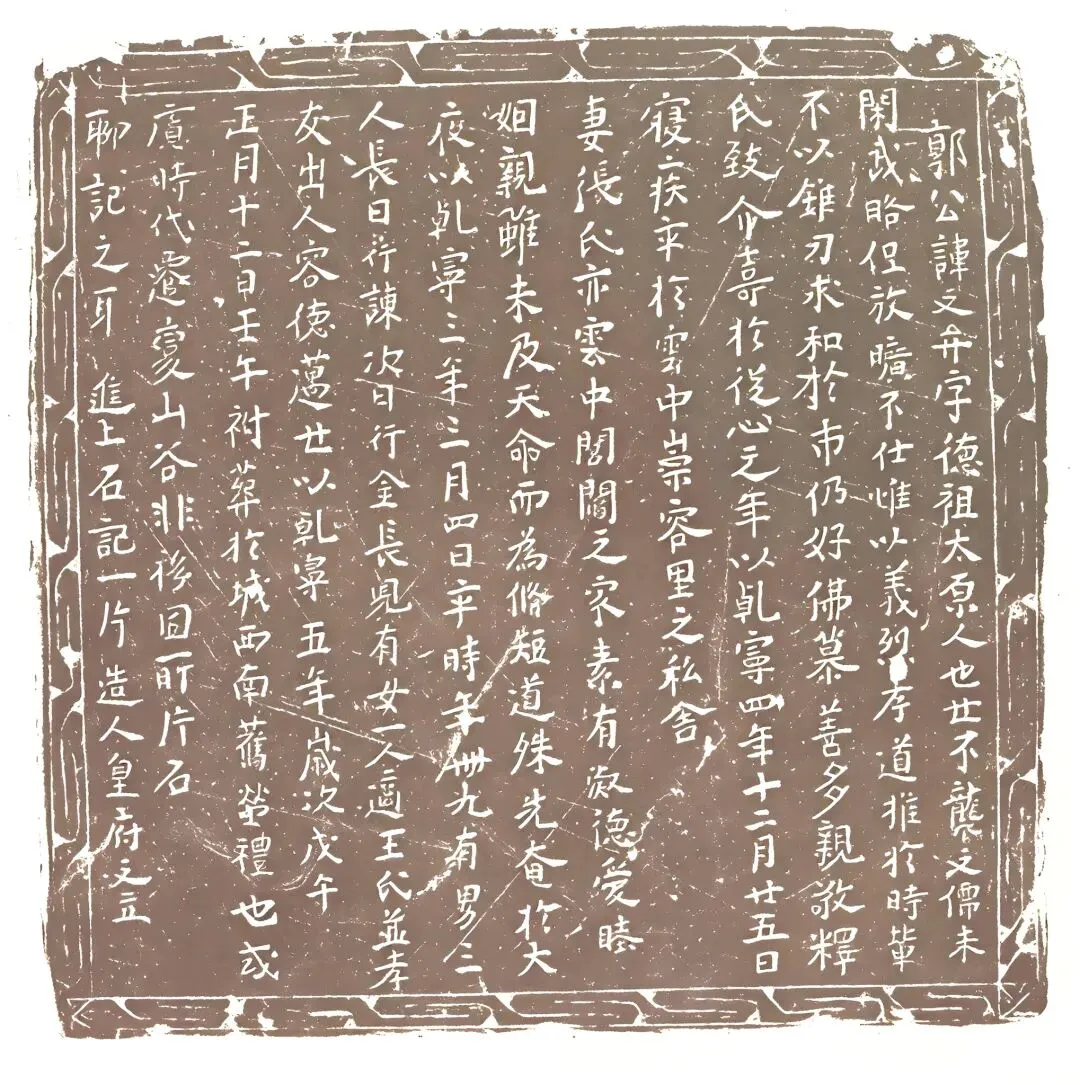 郭公諱文弁字德祖大原人也廿不襲文儒未
閑武略但放曠不仕惟以義烈存道推於時輩
不以錐刃求和於市仍好佛慕善多親敬釋
氏致介喜於從心之年以乹寧四年十二月廿五日
寢疾卒於雲中崇容里之私舍
妻張氏亦雲中閻閭之家素有淑德愛睦
姻親雖未及天命而為脩短道殊先奄於大
夜以乹寧三年三月四日卒時年卌九有男三
人長曰行諫次曰行全長兒有女一人適王氏並孝
友出人容德邁世以乹寧五年歲次戊午
正月十二日壬午祔葬於城西南舊塋禮也或
虞時代遷變山谷非移因斫片石
聊記之耳 進上石記一片造人皇府文立